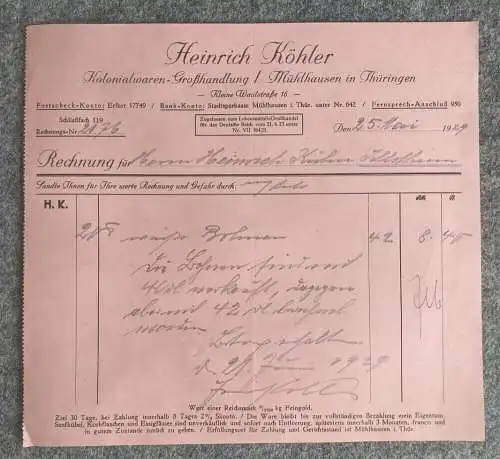 Heinrich Köhler
Kolonialwaren-Großhandlung / Mühlhausen in Thüringen
— Kleine Waidstraße 16 —
Postscheck-Konto: Erfurt 17749 / Bank-Konto: Stadtsparkasse Mühlhausen i. Thür. unter Nr. 642 / Fernsprech-Anschluß 950
Schließfach 119
Zugelassen zum Lebensmittel-Großhandel
für das Deutsche Reich vom 21. 6. 23 unter
Nr. VII 16421
Rechnungs-Nr.
Den 25 Mai 1929
Rechnung für Herrn Heinrich
Sandte Ihnen für Ihre werte Rechnung und Gefahr durch
H. K.
weiße Bohnen 42 8 40
Die Bohnen sind mit
40 verkauft, dagegen
aber mit 42 berechnet
worden
Betrag erhalten
1929
Wert einer Reichsmark 1/2790 kg Feingold.
Ziel 30 Tage, bei Zahlung innerhalb 8 Tagen 2% Skonto. / Die Ware bleibt bis zur vollständigen Bezahlung mein Eigentum
Senfkübel, Korbflaschen und Essigfässer sind unverkäuflich und sofort nach Entleerung, spätestens innerhalb 3 Monaten, franco und
in gutem Zustande zurück zu geben. / Erfüllungsort für Zahlung und Gerichtsstand ist Mühlhausen i. Thür.